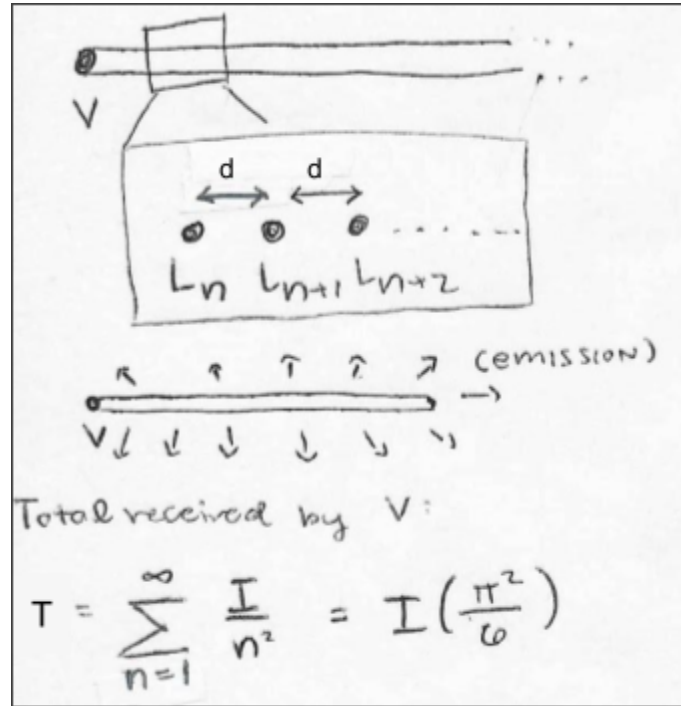 V
d d
Lₙ Lₙ₊₁ Lₙ₊₂
(EMISSION)
V
Total received by V:
T = ∑ₙ₌₁^∞ I/n² = I(π²/6)